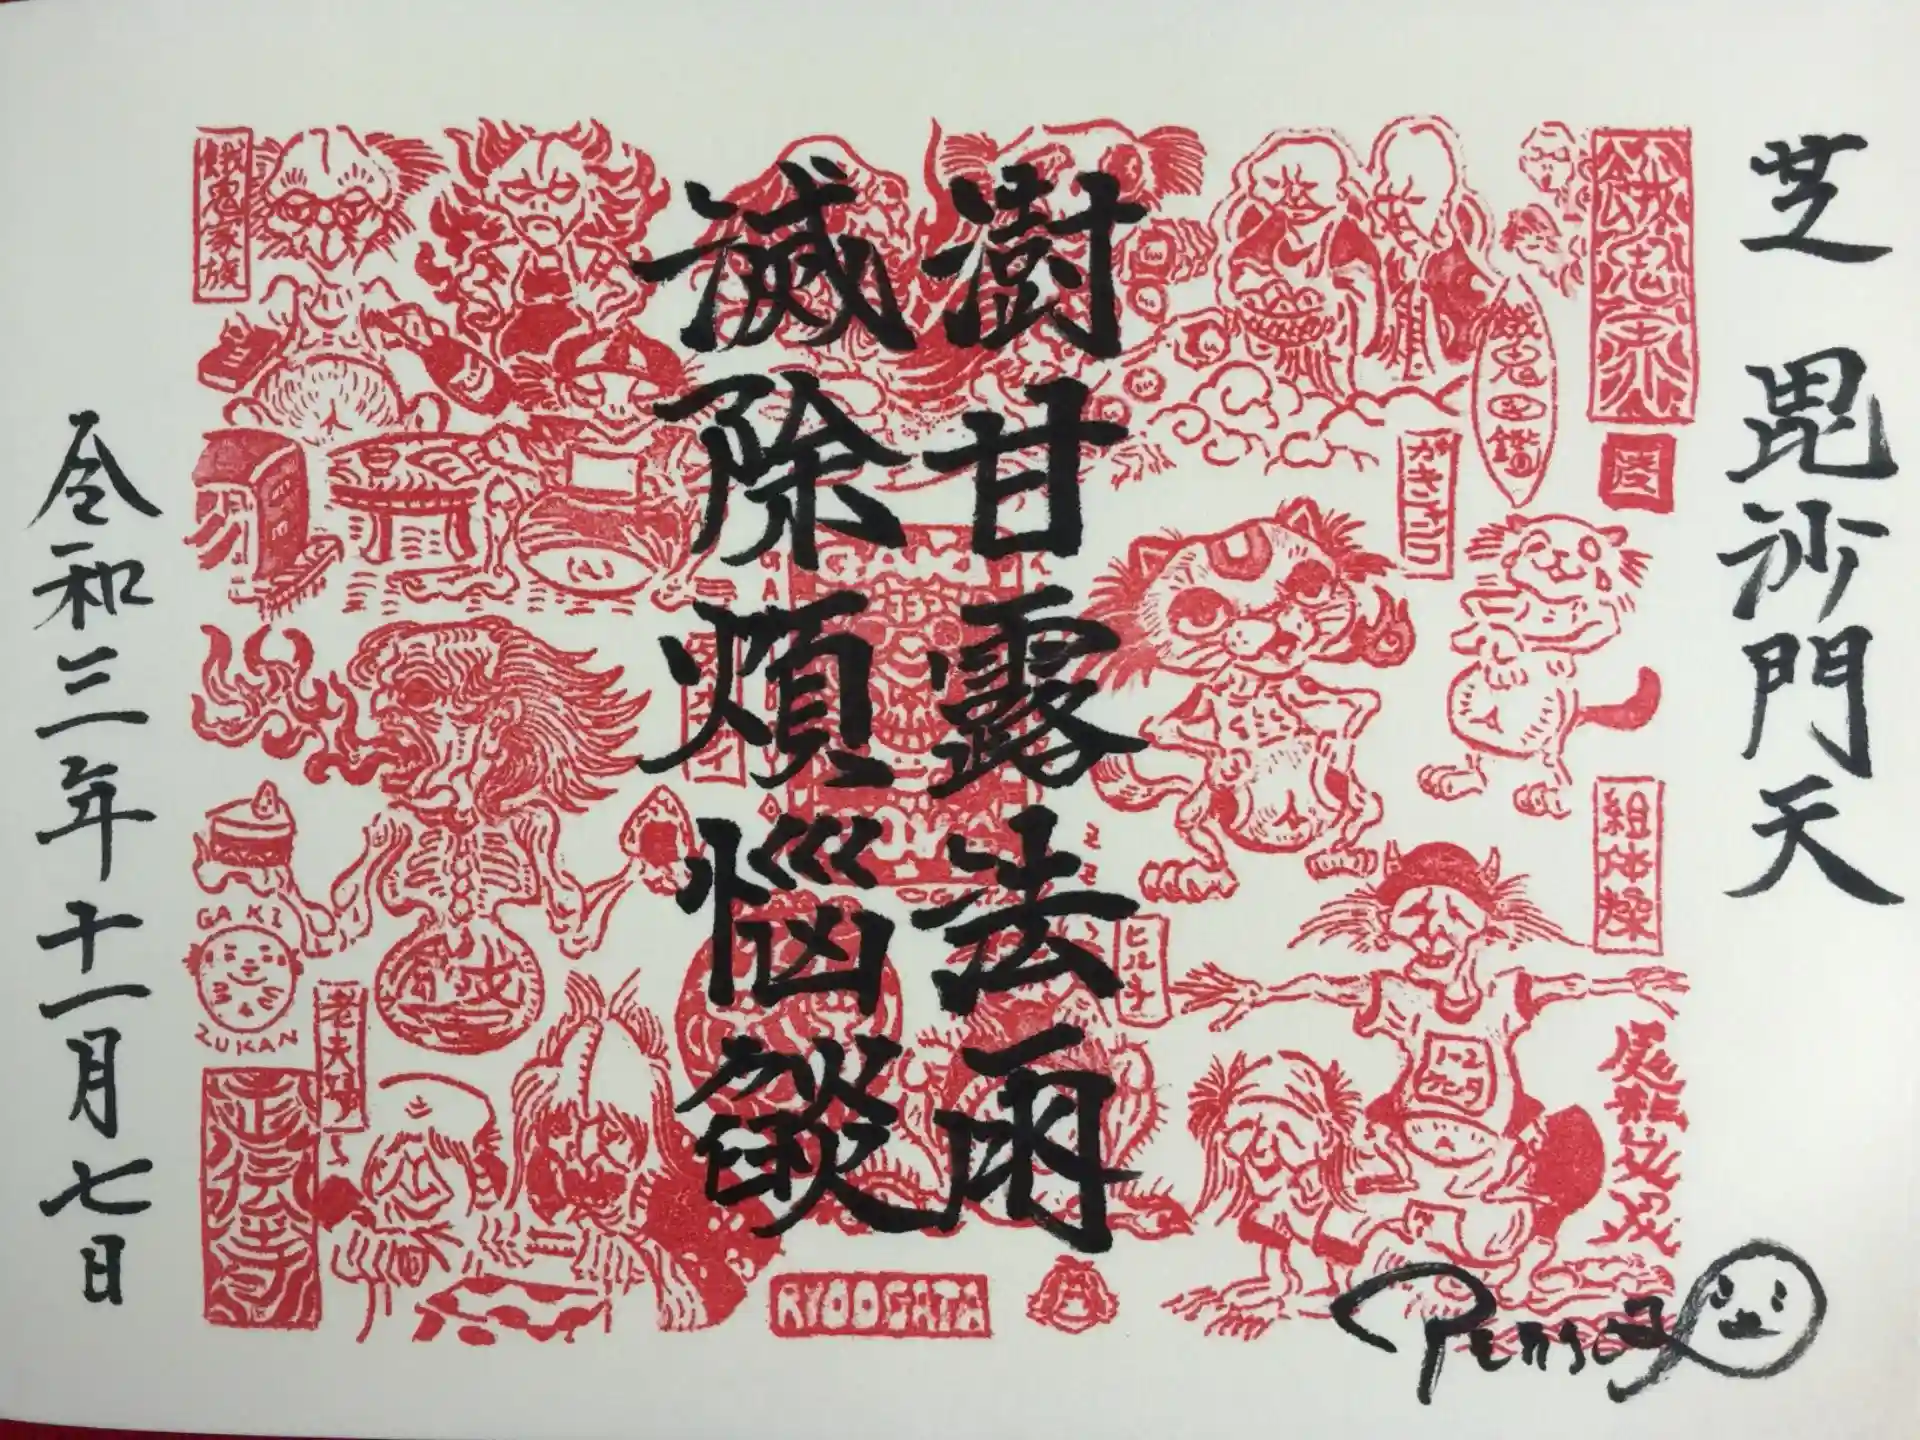 芝 毘沙門天
澍甘露法雨
滅除煩悩燄
令和三年十一月七日
餓鬼家族
餓鬼図鑑
がきネコ
組体操
ヒルチ
GAKI
ZUKAN
老夫婦
正傳寺
RYOOGATA